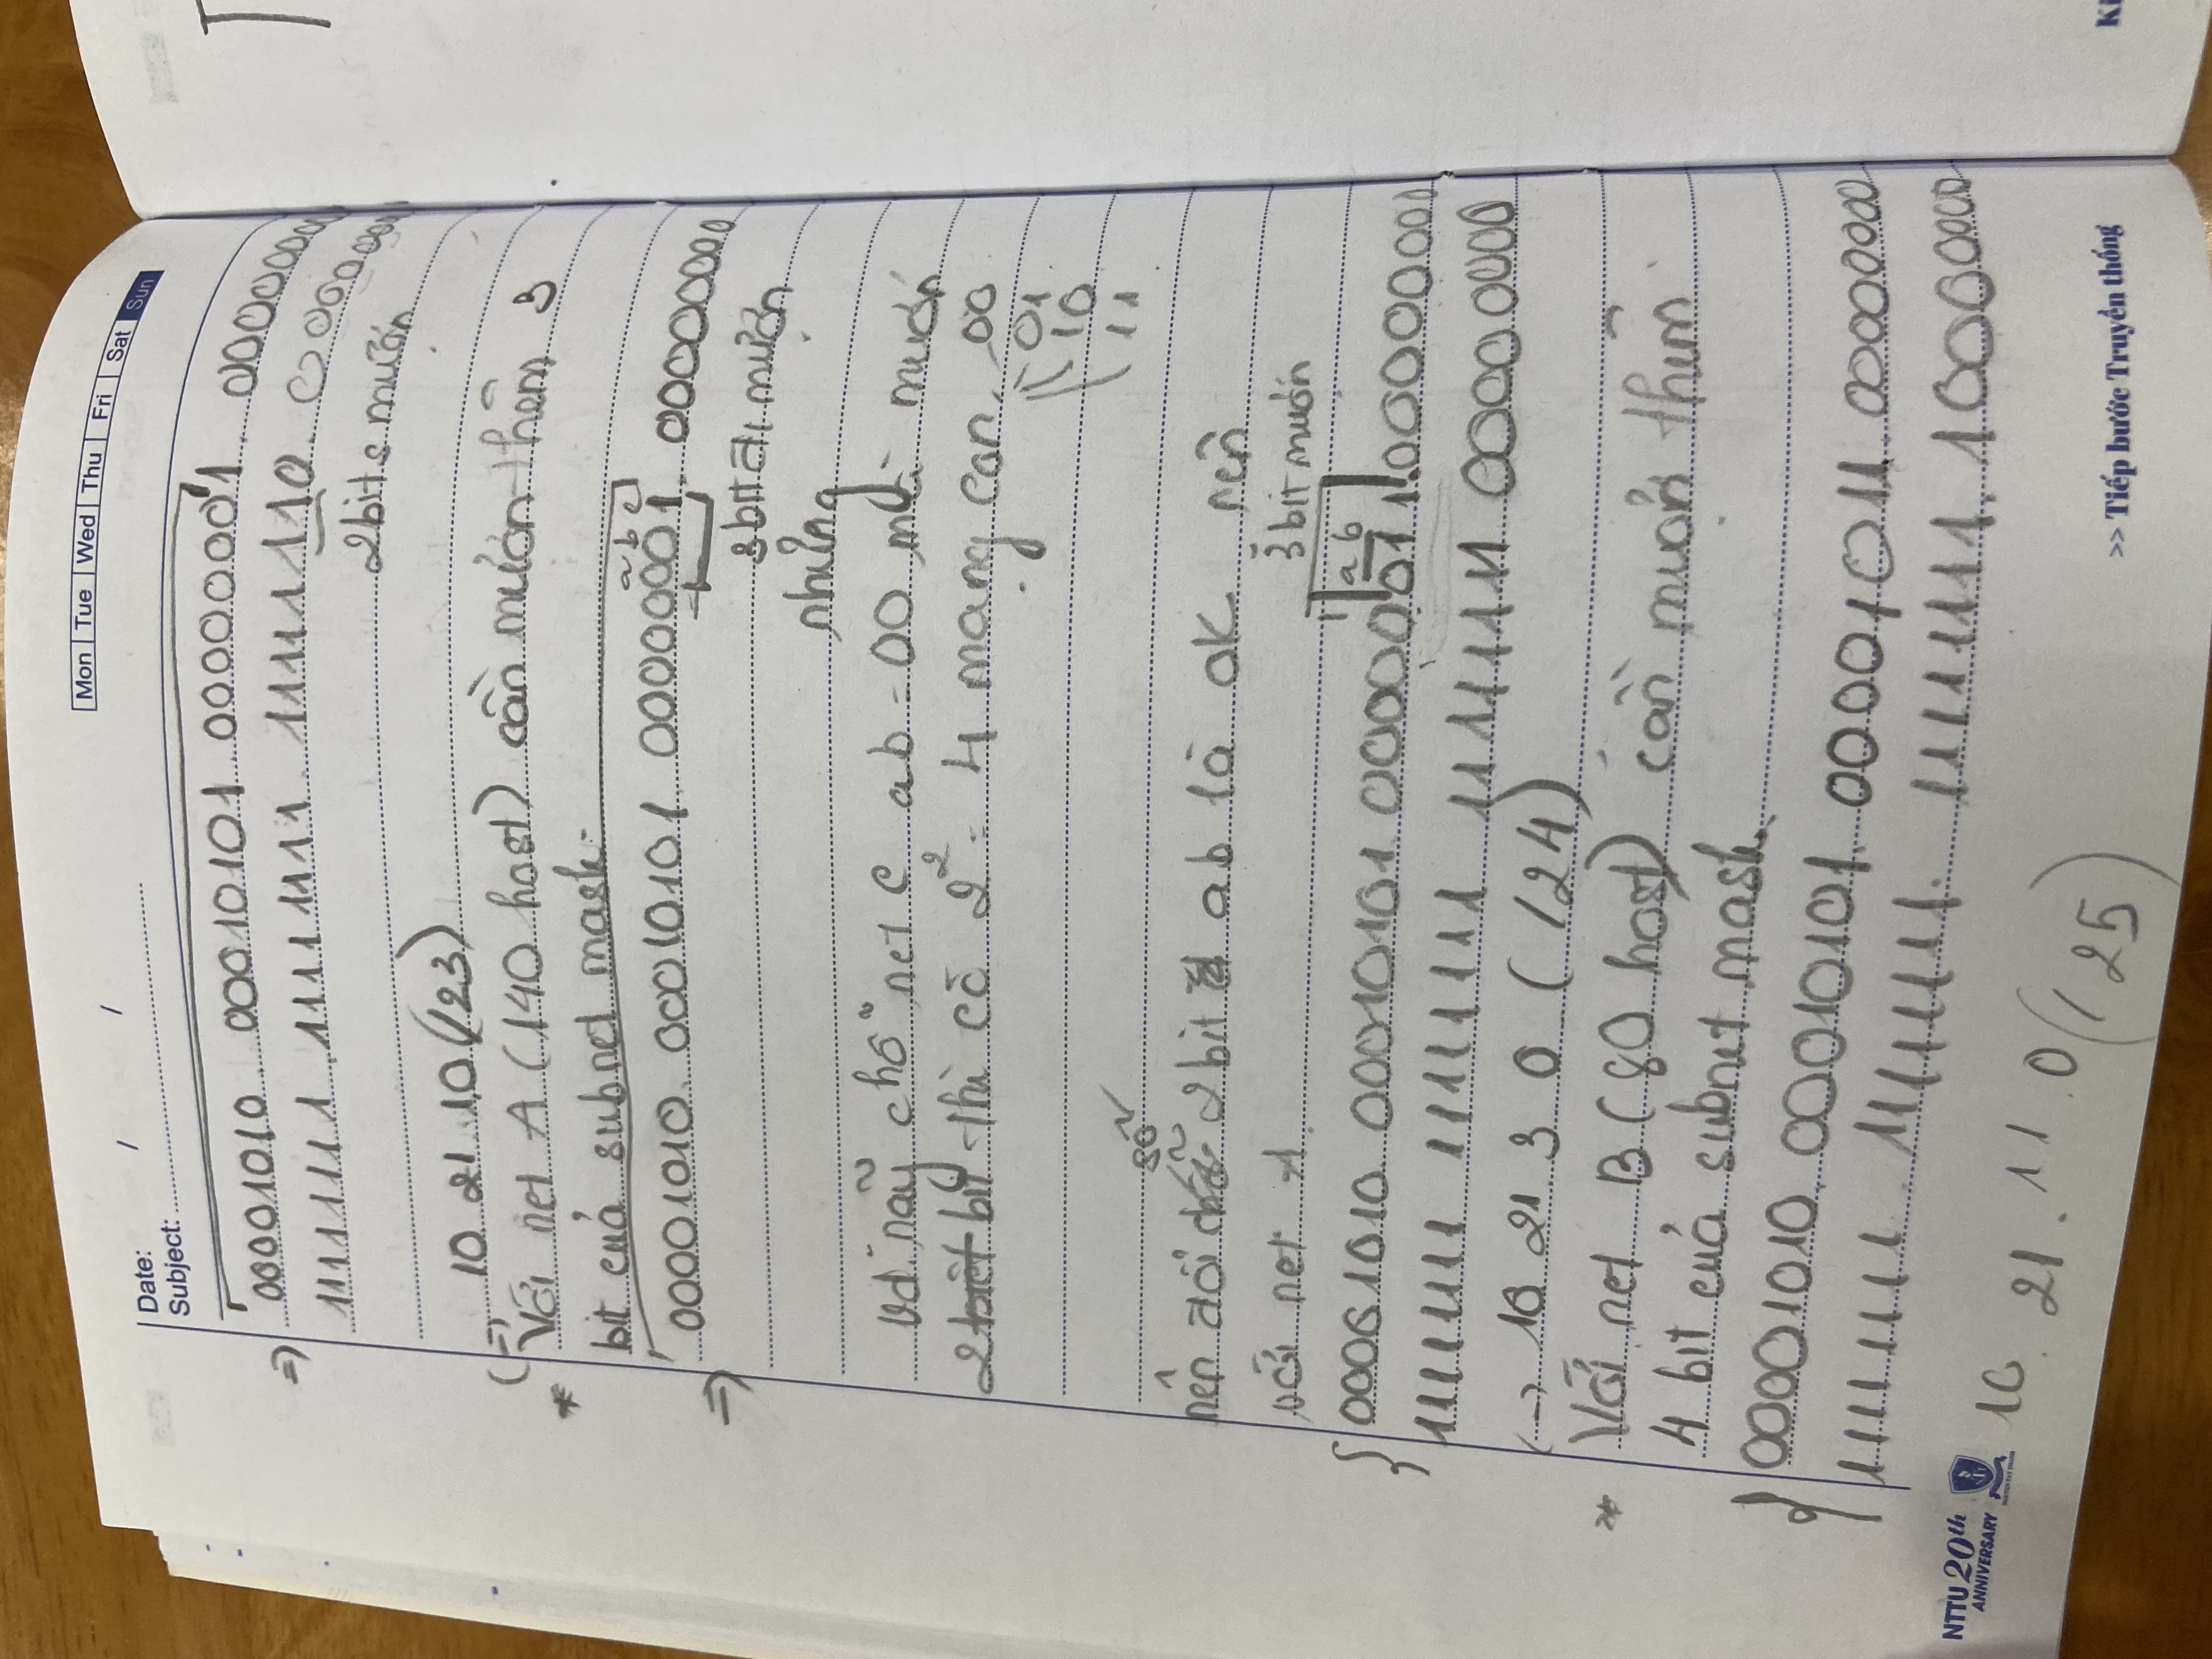 Mon Tue Wed Thu Fri Sat Sun
Date: / /
Subject:
=) 00001010. 00010101. 00000001. 00000000
11111111. 11111111. 11111110. 00000000
2 bits mượn
(=) 10 21 .1.0 (/23)
* Với net A (140 host) cần mượn thêm 3
bit của subnet mask.
a b c
=) 00001010. 00010101. 00000001. 00000000
3 bit đi mượn
nhưng
vd. nãy chỗ net C ab = 00 mà mượn
2 bit thì có 2² = 4 mạng con. 00
01
10
11
số
nên đổi 2 bit ab là OK nên
với net A. 3 bit mượn
a b
00001010. 00010101. 00000011. 00000000
11111111 11111111 11111111 00000000
(=) 10 21. 3 0 (/24)
* Với net B (80 host) cần mượn thêm
4 bit của subnet mask.
00001010. 00010101. 00001011. 00000000
11111111. 11111111. 11111111. 10000000
10. 21. 11. 0 (/25)
NTTU 20th
ANNIVERSARY
>> Tiếp bước Truyền thống